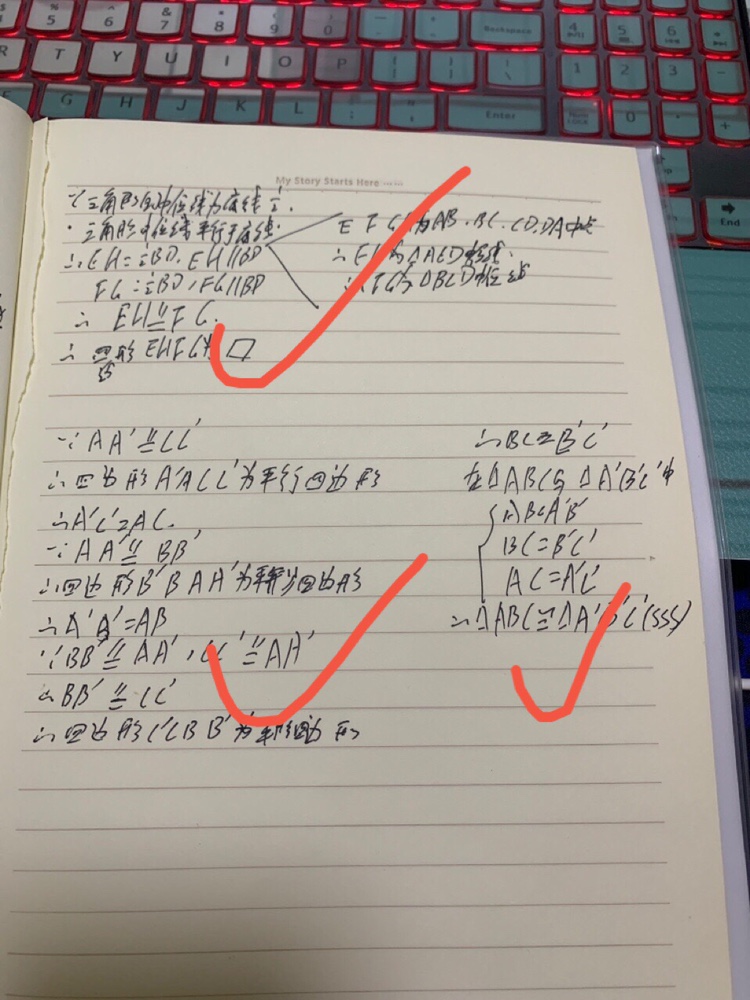 My Story Starts Here
∵三角形的中位线为底线½.
·三角形中位线平行于底线.
∴EH=½BD,EH∥BD
FG=½BD,FG∥BD
∴ EH∥=FG.
∴ 四边形EHFG为▱
E F G H为AB.BC.CD.DA中点
∴EH为△AED中位线.
∴FG为△BCD中位线
∵AA′∥=CC′
∴四边形A′ACC′为平行四边形
∴A′C′=AC.
∵AA′∥=BB′
∴四边形B′BAA′为平行四边形
∴A′B′=AB
∵BB′∥=AA′,CC′∥=AA′
∴BB′∥=CC′
∴四边形C′CBB′为平行四边形
∴BC=B′C′
在△ABC与△A′B′C′中
AB=A′B′
BC=B′C′
AC=A′C′
∴△ABC≌△A′B′C′(SSS)